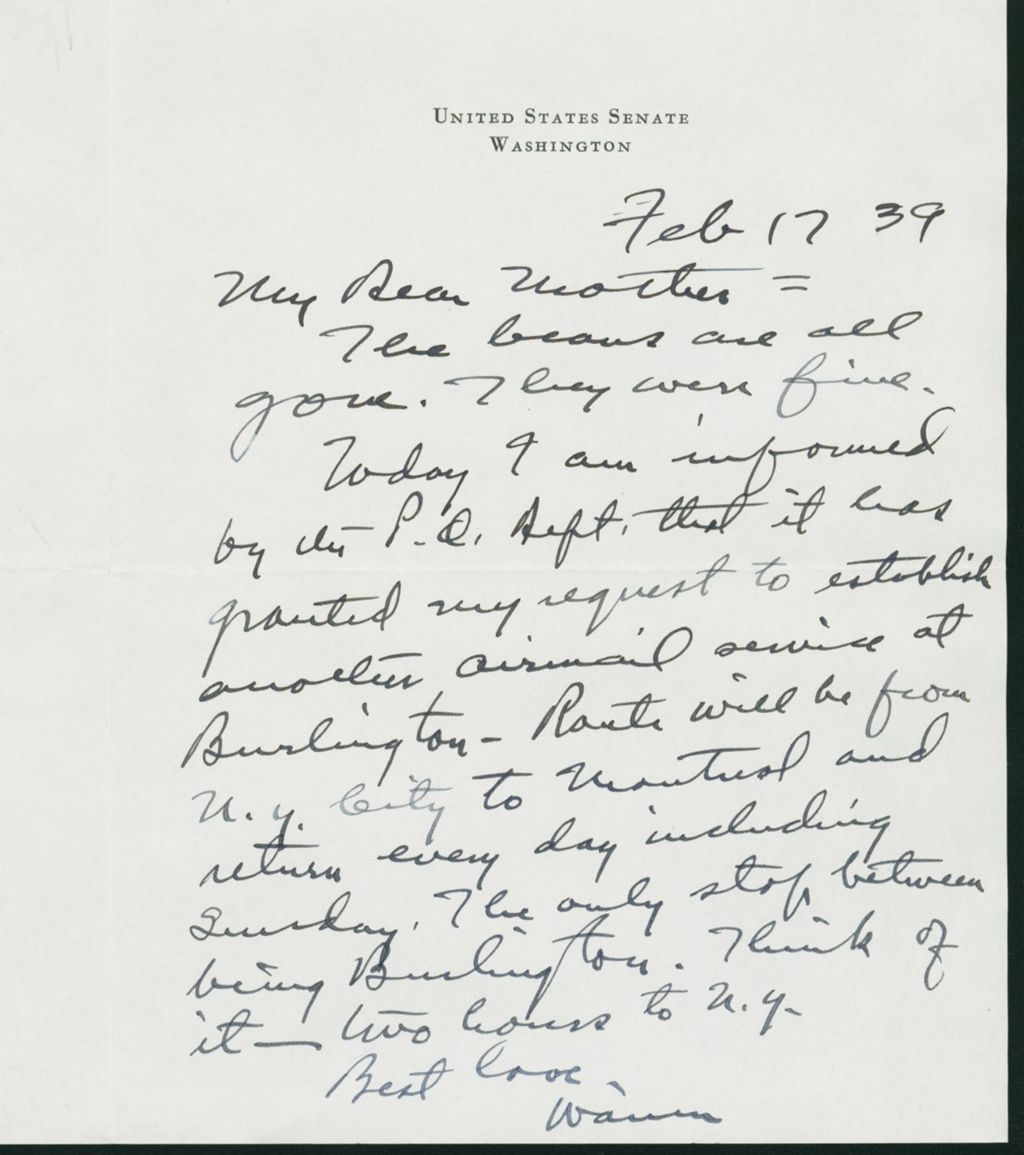 UNITED STATES SENATE
WASHINGTON
Feb 17 39
My Dear Mother =
The beans are all
gone. They were fine.
Today I am informed
by the P.O. Dept. that it has
granted my request to establish
another airmail service at
Burlington - Route will be from
N.Y. City to Montreal and
return every day including
Sunday. The only stop between
being Burlington. Think of
it — two hours to N.Y.
Best love.
Warren